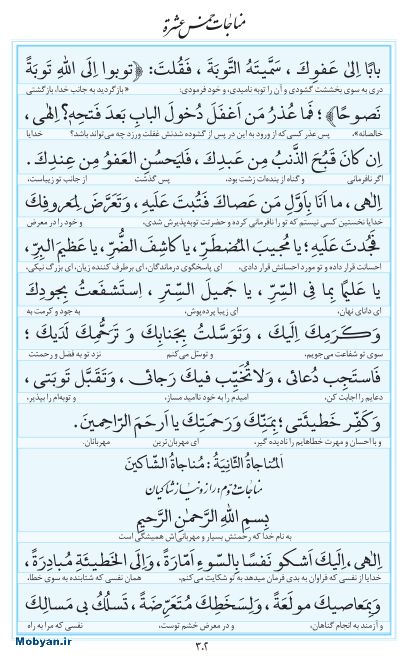 مناجات خمس عشرة
بابًا اِلىٰ عَفوِكَ ، سَمَّيتَهُ التَّوبَةَ ، فَقُلتَ: ﴿توبوا اِلَى اللهِ تَوبَةً
دری به سوی بخششت گشودی و آن را توبه نامیدی، و خود فرمودی: «بازگردید به جانب خدا، بازگشتی
نَصوحًا﴾ ؛ فَما عُذرُ مَن اَغفَلَ دُخولَ البابِ بَعدَ فَتحِهِ؟ اِلٰهی ،
خالصانه»، پس عذر کسی که از ورود به این در پس از گشوده شدنش غفلت ورزد چه می‌تواند باشد؟ خدایا
اِن كانَ قَبُحَ الذَّنبُ مِن عَبدِكَ ، فَليَحسُنِ العَفوُ مِن عِندِكَ .
اگر نافرمانی و گناه از بنده‌ات زشت بود، پس گذشت از جانب تو زیباست،
اِلٰهی ، ما اَنَا بِاَوَّلِ مَن عَصاكَ فَتُبتَ عَلَيهِ ، وَتَعَرَّضَ لِمَعروفِكَ
خدایا نخستین کسی نیستم که تو را نافرمانی کرده و حضرتت توبه‌پذیرش شدی، و خود را در معرض
فَجُدتَ عَلَيهِ ؛ يا مُجيبَ المُضطَرِّ، يا كاشِفَ الضُّرِّ، يا عَظيمَ البِرِّ،
احسانت قرار داده و تو مورد احسانش قرار دادی، ای پاسخگوی درماندگان، ای برطرف کننده زیان، ای بزرگ نیکی،
يا عَليمًا بِما فِی السِّرِّ ، يا جَميلَ السِّترِ ، اِستَشفَعتُ بِجودِكَ
ای دانای نهان، ای زیبا پرده‌پوش، به جود و کرمت به
وَكَرَمِكَ اِلَيكَ ، وَتَوَسَّلتُ بِجَنابِكَ وَ تَرَحُّمِكَ لَدَيكَ ؛
سوی تو شفاعت می‌جویم، و توسل می‌کنم نزد تو به فضل و رحمتت
فَاستَجِب دُعائی ، وَلا تُخَيِّب فيكَ رَجائی ، وَتَقَبَّل تَوبَتی ،
دعایم را اجابت کن، امیدم را به خود ناامید مساز، و توبه‌ام را بپذیر،
وَكَفِّر خَطيئَتی ؛ بِمَنِّكَ وَرَحمَتِكَ يا اَرحَمَ الرّاحِمينَ.
و با احسان و مهرت خطاهایم را نادیده گیر، ای مهربان‌ترین مهربانان.
اَلمُناجاةُ الثّانِيَةُ : مُناجاةُ الشّاكينَ
مناجات دوم: راز و نیاز شاکیان
بِسمِ اللهِ الرَّحمٰنِ الرَّحيمِ
به نام خدا که رحمتش بسیار و مهربانی‌اش همیشگی است
اِلٰهی ، اِلَيكَ اَشكو نَفسًا بِالسّوءِ اَمّارَةً ، وَاِلَى الخَطيئَةِ مُبادِرَةً ،
خدایا از نفسی که فراوان به بدی فرمان میدهد به تو شکایت می‌کنم، همان نفسی که شتابنده به سوی خطا،
وَبِمَعاصيكَ مولَعَةً ، وَلِسَخَطِكَ مُتَعَرِّضَةً ، تَسلُكُ بی مَسالِكَ
و آزمند به انجام گناهان، و در معرض خشم توست، نفسی که مرا به راه
٣٠٢
Mobyan.ir